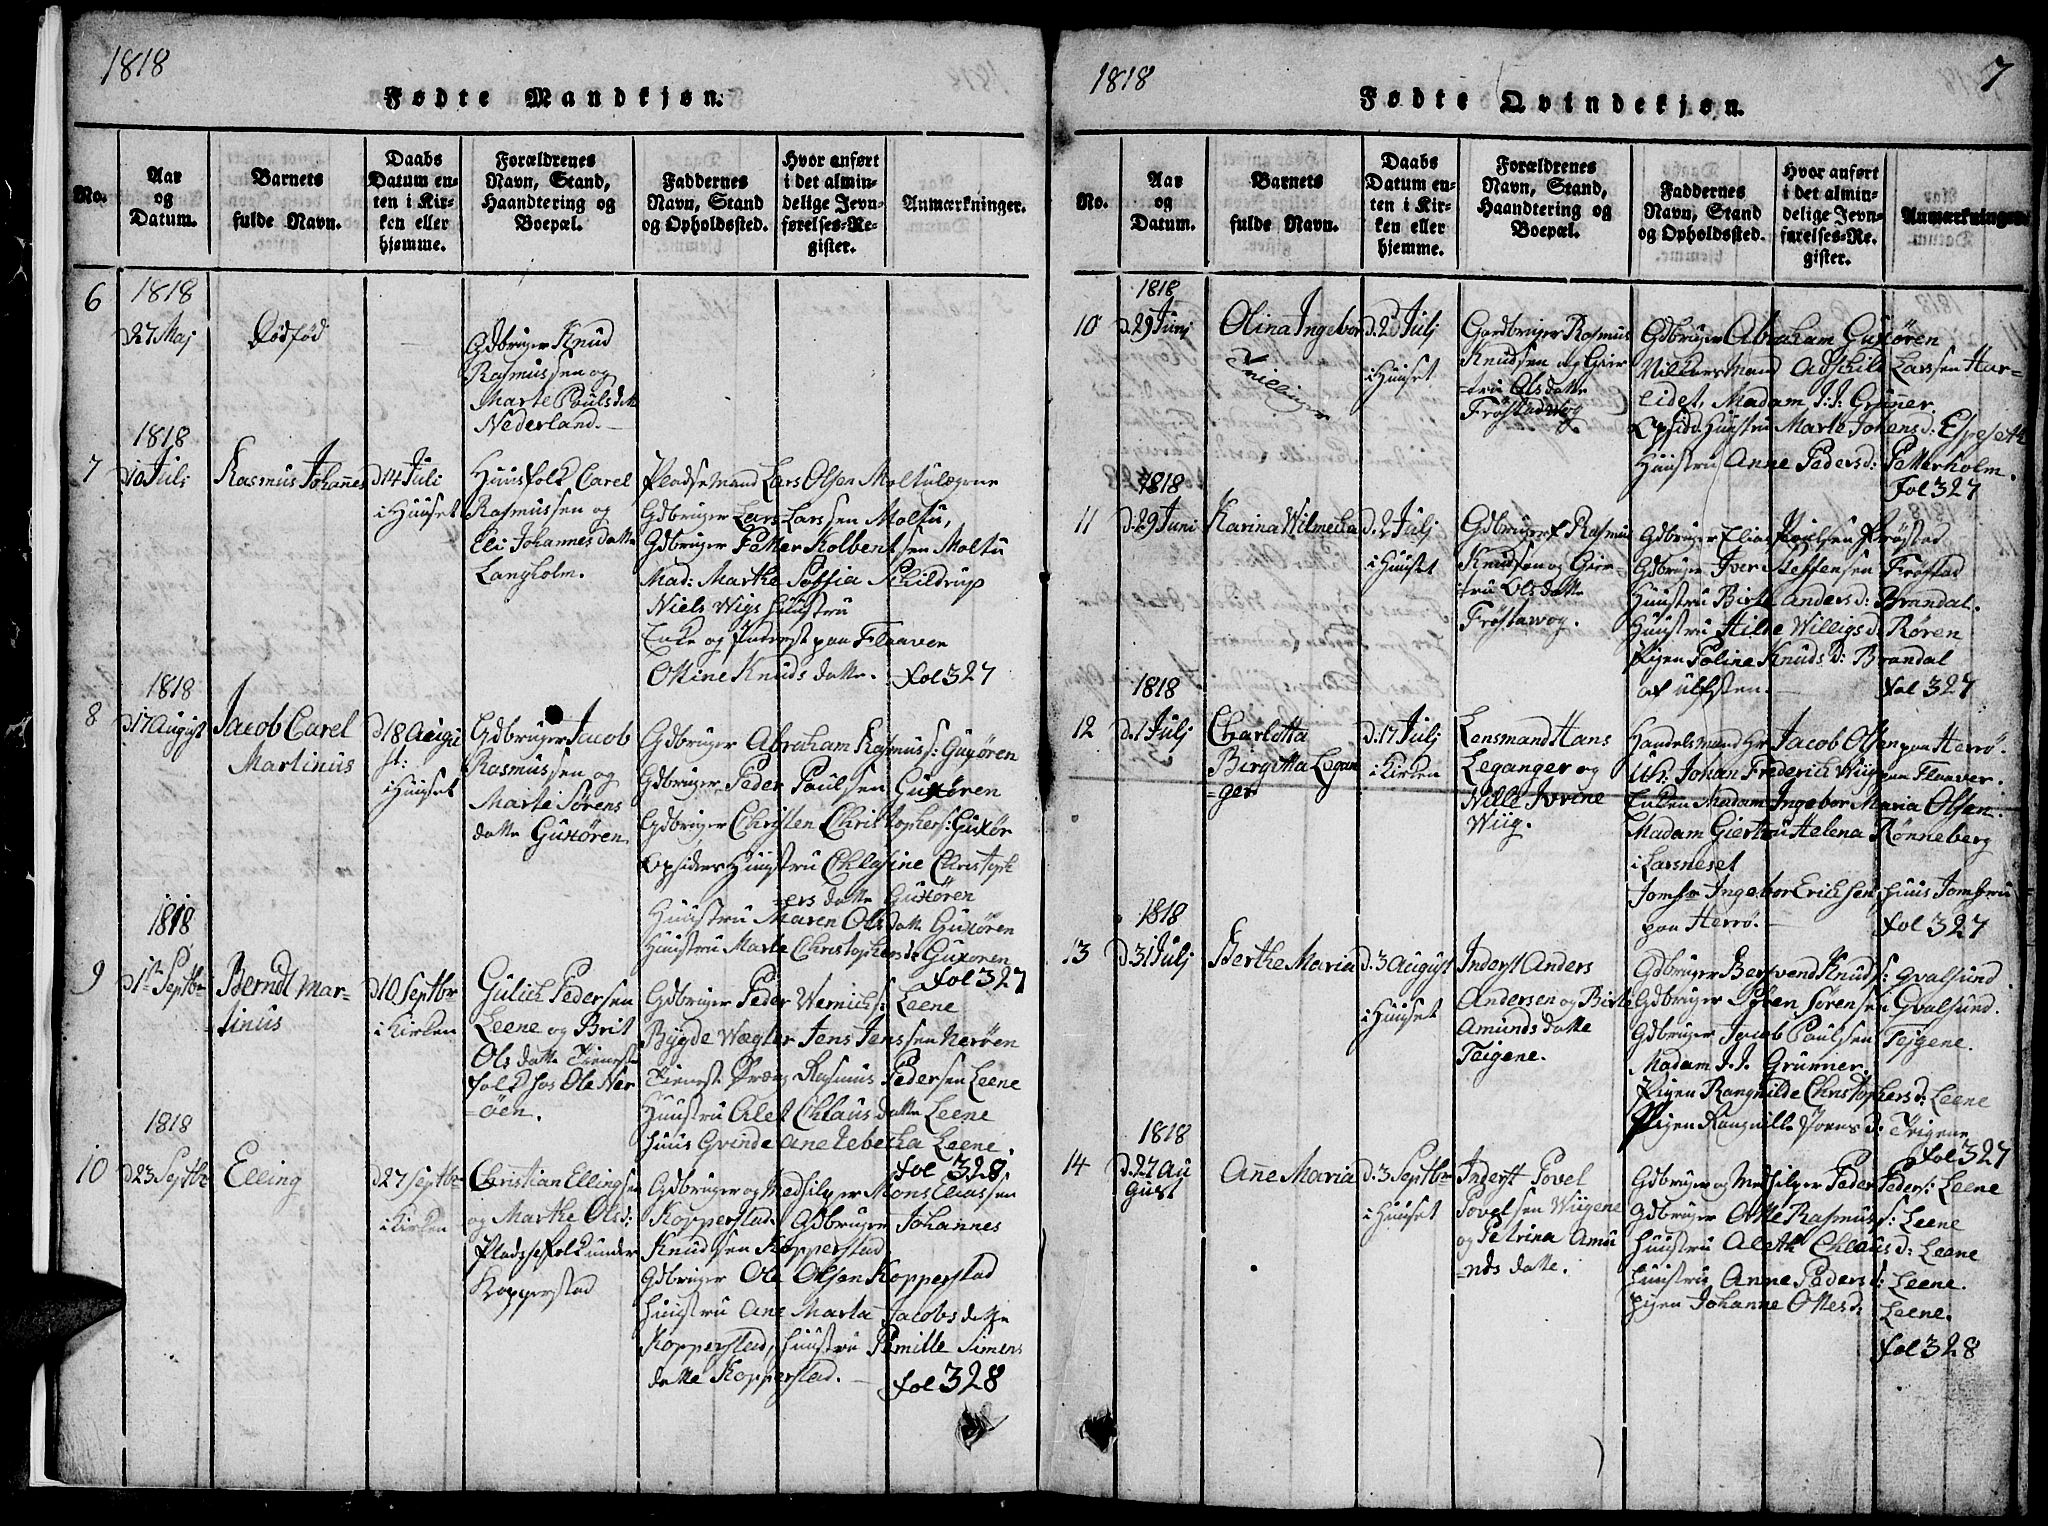 1818
Fødte Mandkjøn.
No.
Aar
og
Datum.
Barnets
fulde Navn.
Daabs
Datum en-
ten i Kir-
ken eller
hjemme.
Forældrenes
Navn, Stand,
Haandtering og
Boepæl.
Faddernes
Navn, Stand
og Opholdssted.
Hvor anført
i det almin-
delige Jevn-
førelses-Re-
gister.
Anmærkninger.
6
1818
d27 Maj
Dødfød
Gdbruger Knud
Rasmussen og
Marte Poulsdatt
Nederland.
7
1818
d10 Juli
Rasmus Johañes
d14 Juli
i Huuset
Huusfolk Carel
Rasmussen og
Eli Johannesdatte
Langholm.
Pladsemand Lars Olsen Moltulægene
Gdbruger Lars Larssen Moltu,
Gdbruger Petter Kolbentsen Moltu
Mad: Marthe Soffia Schildrup
Niels Wigs Huustru
Enke og Inderst paa Flaaven
Oline Knudsdatte.
fol 327
8
1818
d17 August
Jacob Carel
Martinus
d18 Augu
st:
i Huuset
Gdbruger Jacob
Rasmussen og
Marte Sørens
datte Guxøren.
Gdbruger Abraham Rasmuss: Guxøren
Gdbruger Peder Paulsen Guxøren
Gdbruger Christen Christophers: Guxør
Opsider Huustru Chlasine Christoph
=ers datte Guxøren
Huustru Maren Olsdatte Guxøren
Huustru Marte Christophersd: Guxoren
fol 327
9
1818
d1te Septbr
Berndt Mar-
tinus
d10 Septbr
i Kirken
Gulich Pedersen
Leene og Brit
Olsdatte Tieneste
folk hos Ole Ner
=øen.
Gdbruger Peder Wernichs: Leene
Bygde Wægter Jens Jenssen Nerøen
Tieneste Dræng Rasmus Pedersen Leene
Huustru Alet Chlausdatte Leene
Huus Qvinde Ane Rebecka Leene.
fol 328
10
1818
d23 Septbr
Elling
d27 Septbr
i Kirken
Christian Ellingsen
og Marthe Olsd:
Pladssefolk under
Kopperstad
Gdbruger og Medhilper Mons Eliassen
Kopperstad. Gdbruger Johannes
Knudsen Kopperstad
Gdbruger Ole Olsen Kopperstad
Huustru Ane Marta Jacobsdatte
Kopperstad, Huustru Pernille Simens
datte Kopperstad.
fol 328
1818
7
Fødte Qvindekjøn.
No.
Aar
og
Datum.
Barnets
fulde Navn.
Daabs
Datum en-
ten i Kir-
ken eller
hjemme.
Forældrenes
Navn, Stand,
Haandtering og
Boepæl.
Faddernes
Navn, Stand
og Opholdssted.
Hvor anført
i det almin-
delige Jevn-
førelses-Re-
gister.
Anmærkninger.
10
1818
d.29 Juni
Olina Ingebor
Tvillinger
d:2 Julj
i Huuset
Gardbruger Rasmus
Knudsen og Gier
=tru Olsdatte
Frøstadvog
Gdbruger Abraham Guxøren
Vilkorsmand Adschild Larssen Har-
eidet, Madam J: J: Grüner.
Opsidd: Huustru Marte Johansd: Espeseth
Huustru Anne Pedersd: Petterholm.
fol 327
11
1818
d:29 Juni
Karina Wilmecha
d:2 Julj
i Huuset
Gdbruger Rasmus
Knudsen og Gier
tru Olsdatte
Frøstawog.
Gdbruger Elias Poulsen Frøstad
Gdbruger Iver Steffensen Frøstad
Huustru Birte Andersd: Brandal.
Huustru Hilde Willigsd: Røren
Pigen Poline Knudsd: Brandal
af Ulfsten.
fol 327
12
1818
d.1 Julj
Charlotta
Birgitta Legan
=ger
d:17 Julj
i Kirken
Lensmand Hans
Leganger og
Nille Ivrine
Wiig.
Handelsmand Hr Jacob Olsen paa Herrø.
Uk: Johan Frederich Wiig paa Flaaver.
Enken Madam Ingebor Maria Olsen.
Madam Giertru Helena Rønneberg
i Larsneset
Jomfr Ingebor Erichsen, Huus Jomfru
paa Herrø.
fol 327
13
1818
d.31 Julj
Berthe Maria
d:3 August
i Huuset
Inderst Anders
Andersen og Birte
Amundsdatte
Teigene.
Gdbruger Bersvend Knuds: Qvalsund
Gdbruger Søren Sørensen Qvalsund.
Gdbruger Jacob Paulsen Tejgene.
Madam J. J. Grunner.
Pigen Rangnilde Christophersd: Leene
Pigen Rangnille Jørnsd: Teigene
fol 327
14
1818
d.27 Au
gust
Añe Maria
d:3 Septbr
i Huuset
Inderst Povel
Povelsen Wiigene
og Petrina Amu
=nds datte.
Gdbruger og Medhilper Peder Peders: Leene
Gdbruger Otte Rasmuss: Leene
Huustru Aleth Chlausd: Leene
Huustru Anne Pedersd: Leene.
Pigen Johanne Ottesd: Leene.
fol 328